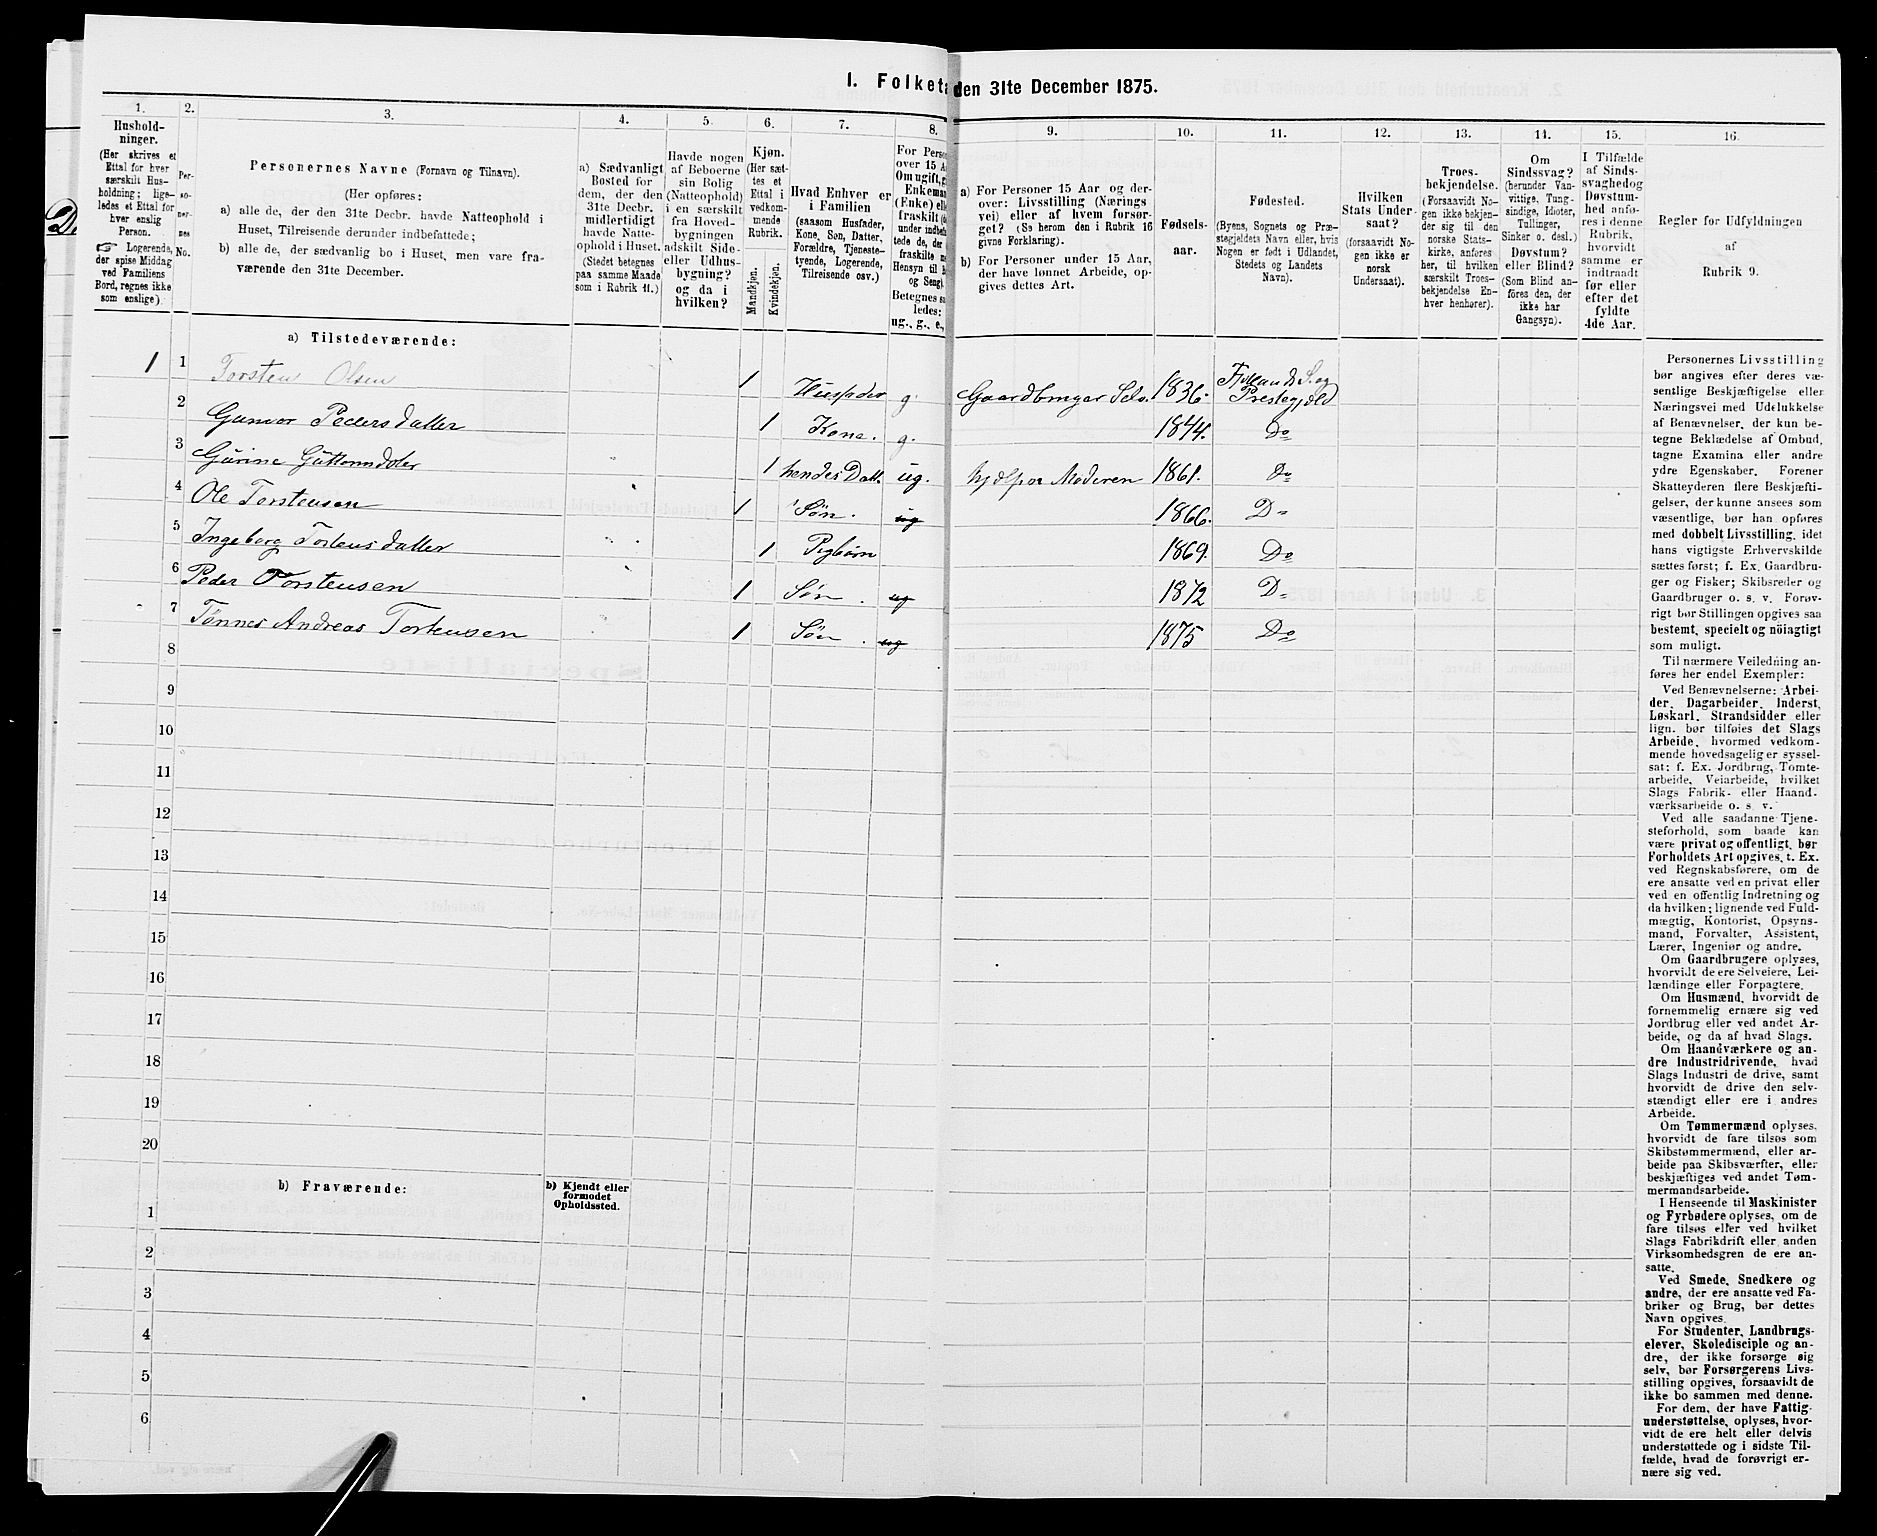 I. Folketæ
den 31te December 1875.
1.
2.
3.
4.
5.
6.
7.
8.
9.
10.
11.
12.
13.
14.
15.
16.
Hushold-
ninger.
(Her skrives et
Ettal for hver
særskilt Hus-
holdning; lige-
ledes et Ettal for
hver enslig
Person.
☞ Logerende,
der spise Middag
ved Familiens
Bord, regnes ikke
som enslige).
Per-
so-
ner-
nes
No.
Personernes Navne (Fornavn og Tilnavn).
(Her opføres:
a) alle de, der den 31te Decbr. havde Natteophold i
Huset, Tilreisende derunder indbefattede;
b) alle de, der sædvanlig bo i Huset, men vare fra-
værende den 31te December.
a) Sædvanligt
Bosted for
dem, der den
31te Decbr.
midlertidigt
havde Natte-
ophold i Huset.
(Stedet betegnes
paa samme Maade
som i Rubrik 11.)
Havde nogen
af Beboerne
sin Bolig
(Natteophold)
i en særskilt
fra Hoved-
bygningen
adskilt Side-
eller Udhus-
bygning?
og da i
hvilken?
Kjøn.
(Her sæt-
tes et
Ettal i
vedkom-
mende
Rubrik.
Mandkjøn.
Kvindekjøn.
Hvad Enhver er
i Familien
(saasom Husfader,
Kone, Søn, Datter,
Forældre, Tjeneste-
tyende, Logerende,
Tilreisende osv.)
For Person
over 15 A
Om ugift, g
Enkeman
(Enke) elle
fraskilt (
under indbefa
tede de, der
fraskilte m
Hensyn til B
og Seng).
Betegnes sa
ledes:
ug., g., e.,
a) For Personer 15 Aar og der-
over: Livsstilling (Nærings
vei) eller af hvem forsør-
get? (Se herom den i Rubrik 16
givne Forklaring).
b) For Personer under 15 Aar,
der have lønnet Arbeide, op-
gives dettes Art.
Fødsels-
aar.
Fødested.
(Byens, Sognets og Præ-
stegjeldets Navn eller, hvis
Nogen er født i Udlandet,
Stedets og Landets
Navn).
Hvilken
Stats Under-
saat?
(forsaavidt No-
gen ikke er
norsk
Undersaat).
Troes-
bekjendelse.
(Forsaavidt No-
gen ikke bekjen-
der sig til den
norske Stats-
kirke, anføres
her, til hvilken
særskilt Troes-
bekjendelse En-
hver henhører).
Om
Sindssvag?
(herunder Van-
vittige, Tung-
sindige, Idioter,
Tullinger,
Sinker o. desl.)
Døvstum?
eller Blind?
(Som Blind an-
føres den, der
ikke har
Gangsyn).
I Tilfælde
af Sinds-
svaghed og
Døvstum-
hed anfø-
res i denne
Rubrik,
hvorvidt
samme er
indtraadt
før eller
efter det
fyldte
4de Aar.
Regler for Udfyldningen
af
Rubrik 9.
a) Tilstedeværende:
1 1 Torsten Olsen 1 Husfader g. Gaardbruger Selv. 1836. Fjellands S. og
Prestegjeld
2 Gunvor Pedersdatter 1 Kone. g. 1844. Do
3 Gurine Guttormdoter 1 hendes Datt. ug. hjelper Moderen 1861. Do
4 Ole Torstensen 1 Søn. ug 1866. Do
5 Ingeborg Tostensdatter 1 Pigbørn 1869. Do
6 Peder Torstensen 1 Søn. ug 1872 Do
7 Tønnes Andreas Torstensen 1 Søn. ug 1875 Do
8
9
10
11
12
13
14
15
16
17
18
19
20
b) Fraværende:
b) Kjendt eller
formodet
Opholdssted.
1
2
3
4
5
6
Personernes Livsstilling
bør angives efter deres væ-
sentlige Beskjæftigelse eller
Næringsvei med Udelukkelse
af Benævnelser, der kun be-
tegne Beklædelse af Ombud,
tagne Examina eller andre
ydre Egenskaber. Forener
Skatteyderen flere Beskjæfti-
gelser, der kunne ansees som
væsentlige, bør han opføres
med dobbelt Livsstilling, idet
hans vigtigste Erhvervskilde
sættes først; f. Ex. Gaardbru-
ger og Fisker; Skibsreder og
Gaardbruger o. s. v. Forøv-
rigt bør Stillingen opgives saa
bestemt, specielt og nöiagtigt
som muligt.
Til nærmere Veiledning an-
føres her endel Exempler:
Ved Benævnelserne: Arbei-
der, Dagarbeider, Inderst,
Løskarl, Strandsidder eller
lign. bør tilføies det Slags
Arbeide, hvormed vedkom-
mende hovedsagelig er syssel-
sat; f. Ex. Jordbrug, Tomte-
arbeide, Veiarbeide, hvilket
Slags Fabrik- eller Haand-
værksarbeide o. s. v.
Ved alle saadanne Tjene-
steforhold, som baade kan
være privat og offentligt, bør
Forholdets Art opgives, t. Ex.
ved Regnskabsførere, om de
ere ansatte ved en privat eller
ved en offentlig Indretning og
da hvilken; lignende ved Fuld-
mægtig, Kontorist, Opsyns-
mand, Forvalter, Assistent,
Lærer, Ingeniør og andre.
Om Gaardbrugere oplyses,
hvorvidt de ere Selveiere, Lei-
lændinge eller Forpagtere.
Om Husmænd, hvorvidt de
fornemmelig ernære sig ved
Jordbrug eller ved andet Ar-
beide, og da af hvad Slags.
Om Haandværkere og an-
dre Industridrivende, hvad
Slags Industri de drive, samt
hvorvidt de drive den selv-
stændigt eller ere i andres
Arbeide.
Om Tømmermænd oplyses,
hvorvidt de fare tilsøs som
Skibstømmermænd, eller ar-
beide paa Skibsværfter, eller
beskjæftiges ved andet Tøm-
mermandsarbeide.
I Henseende til Maskinister
og Fyrbødere oplyses, om de
fare tilsøs eller ved hvilket
Slags Fabrikdrift eller anden
Virksomhedsgren de ere an-
satte.
Ved Smede, Snedkere og
andre, der ere ansatte ved Fa-
briker og Brug, bør dettes
Navn opgives.
For Studenter, Landbrugs-
elever, Skoledisciple og an-
dre, der ikke forsørge sig
selv, bør Forsørgerens Livs-
stilling opgives, forsaavidt de
ikke bo sammen med denne.
For dem, der have Fattig-
understøttelse, oplyses, hvor-
vidt de ere helt eller delvis
understøttede og i sidste Til-
fælde, hvad de forøvrigt er-
nære sig ved.